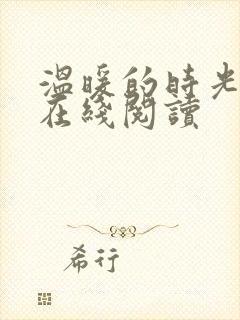 溫暖的時光
在綫閱讀
希行